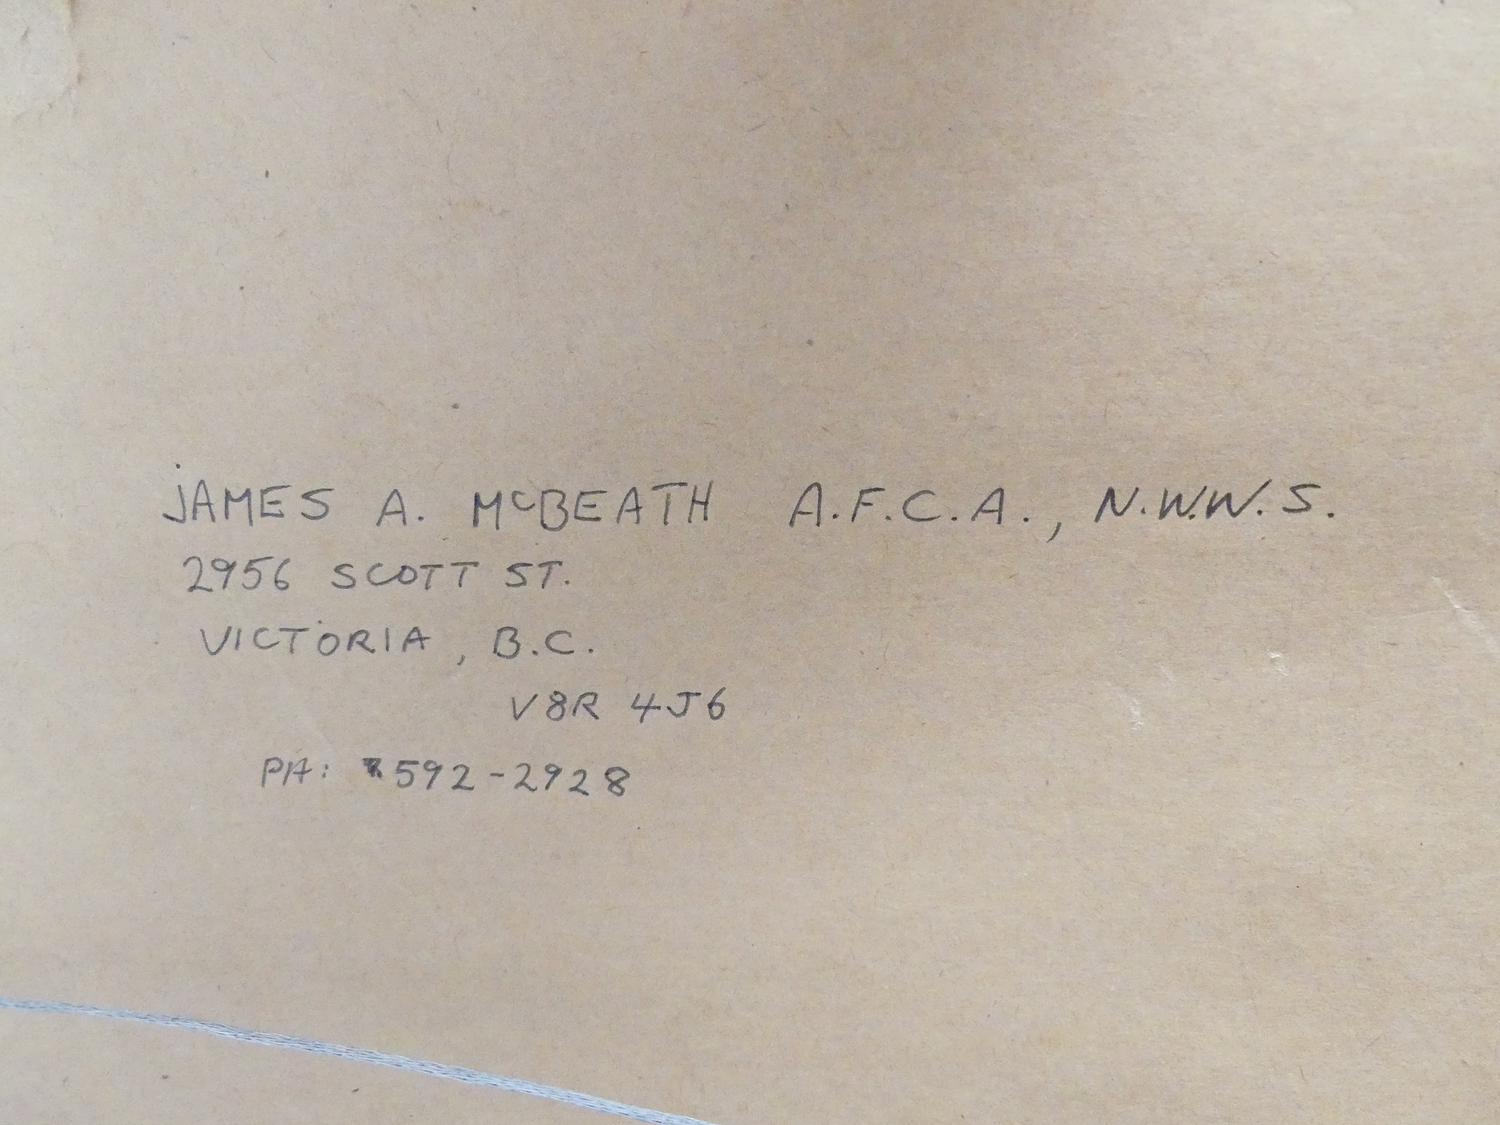 JAMES A. McBEATH A.F.C.A., N.W.W.S.
2956 SCOTT ST.
VICTORIA, B.C.
V8R 4J6
PH: 592-2928